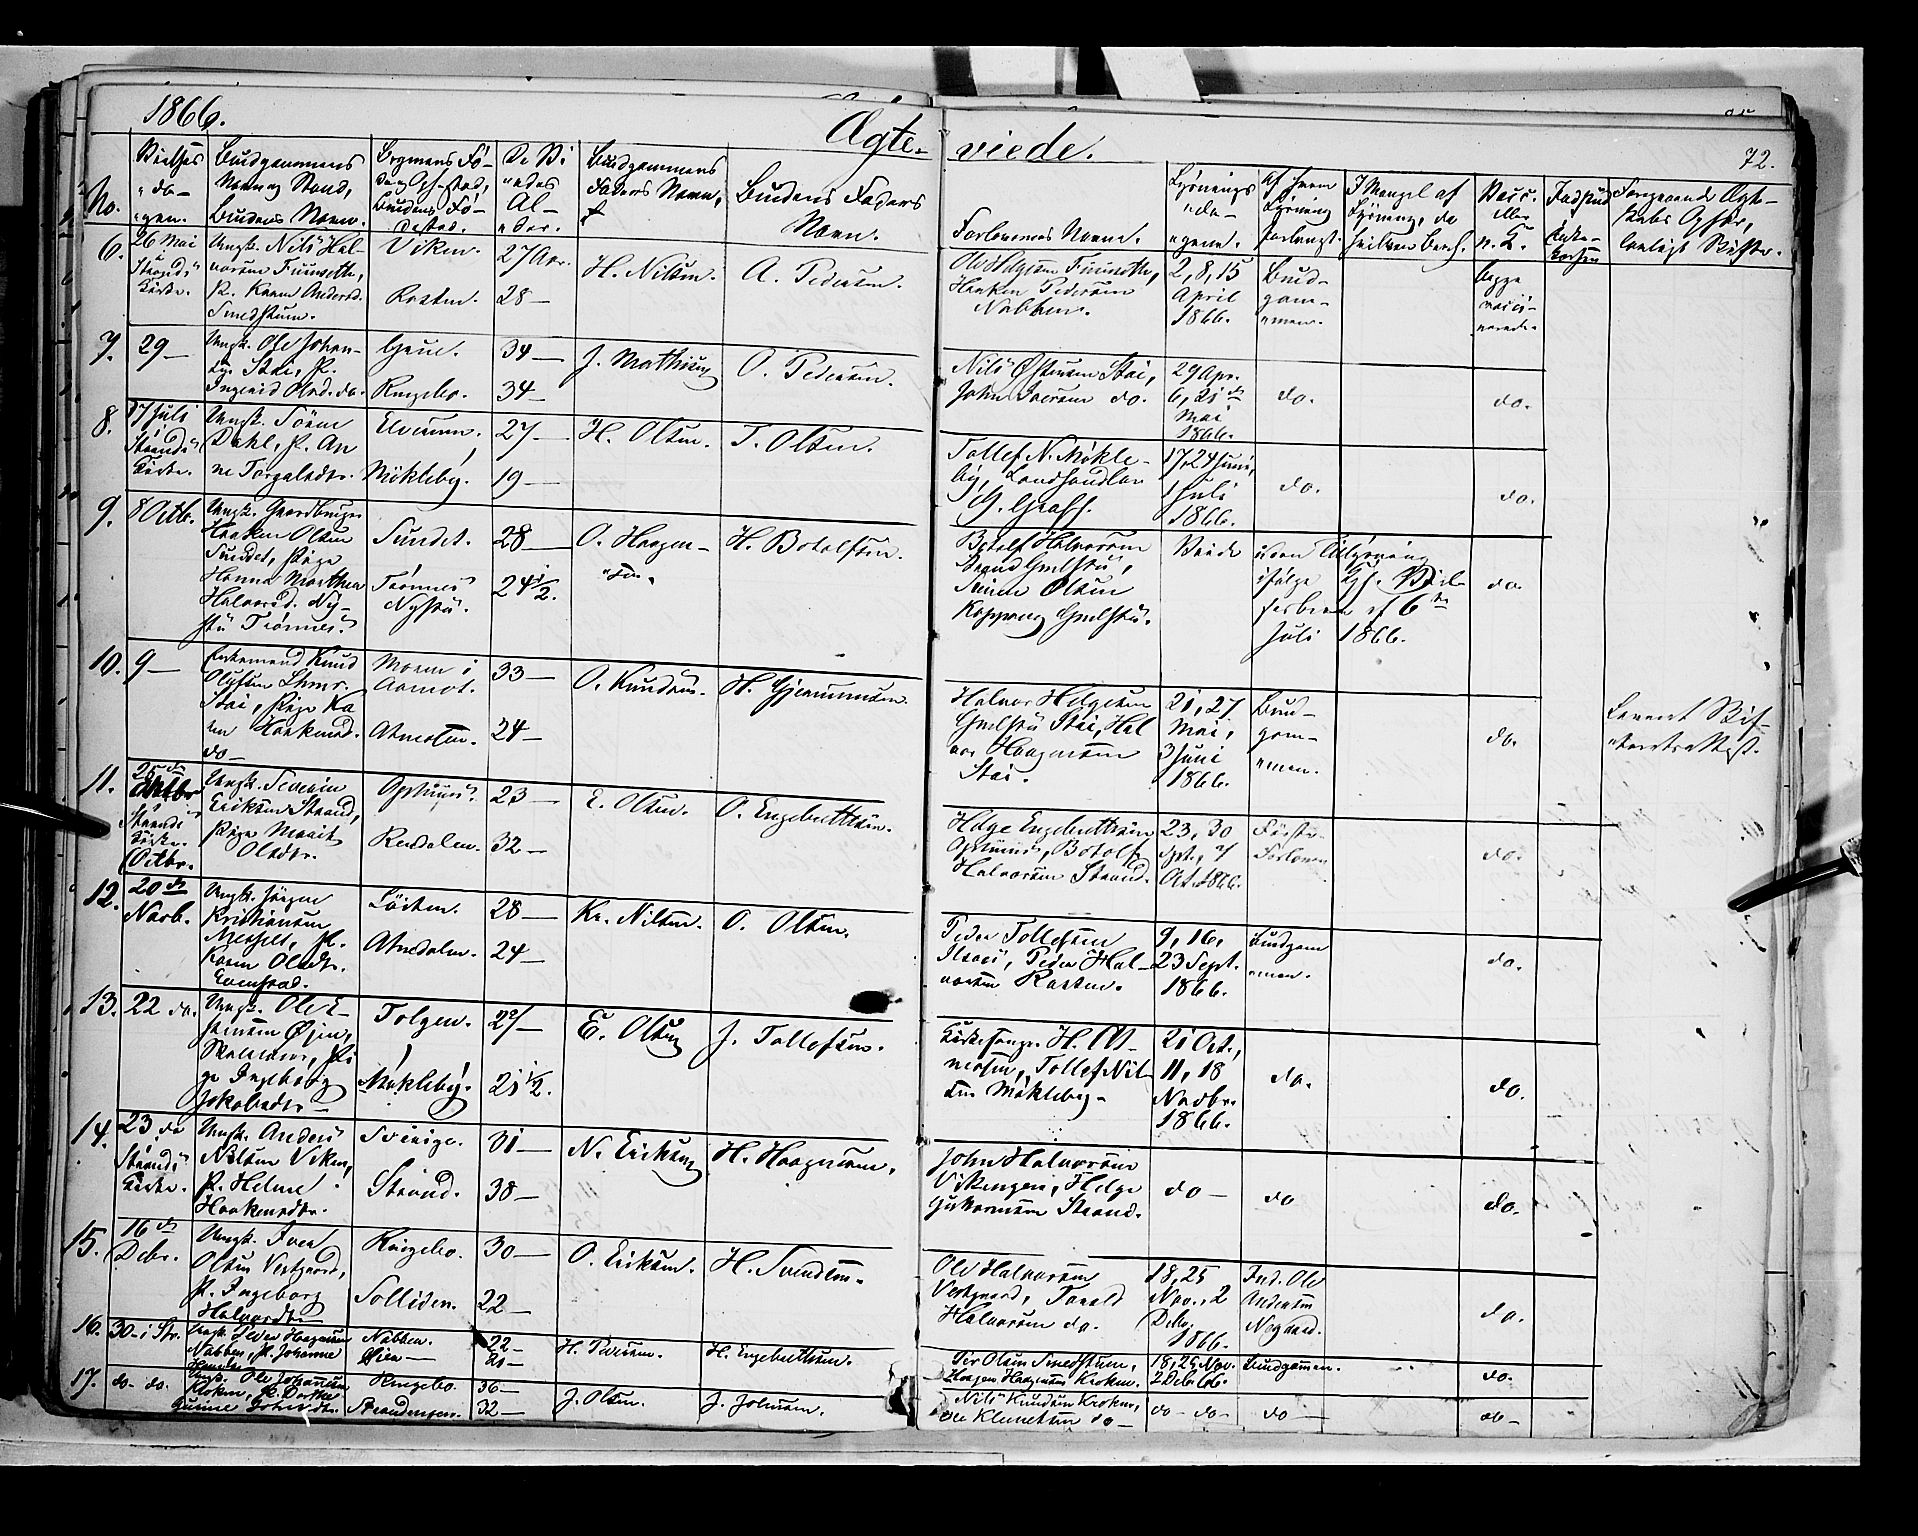 1866.
Ægte-
viede.
72.
No.
Vielses
da-
gen.
Brudgommens
Navn og Stand,
Brudens Navn.
Brudgommens
Faders Navn,
Brudens Faders
Navn.
Forlovernes Navne.
Lysnings
da-
gene.
Af hvem
Lysning
forlangt.
I Mangel af
Lysning, da
Vacc.
eller
n. K.
Foregaaende Ægt-
skabs Ophør,
lovligt Skifte.
6.
26 Mai
Strands
Kirke.
Ungk. Nils Hal-
vorsen Finnseth,
P. Karen Andersd.
Smedstuen.
Viken.
Rasten.
27 Aar.
28 —
H. Nilsen.
A. Pedersen.
Ole Helgesen Finnseth,
Haaken Pedersen
Nabben.
2, 8, 15
April
1866.
Brud-
gom-
men.
begge
vacci-
nerede.
7.
29 —
Ungk. Ole Johan-
Stai, P.
Ingerid Olsd. do.
Ringebo.
34 —
34 —
J. Mathisen
O. Pedersen.
Nils Østensen Stai,
John Iversen do.
29 Apr.
6, 21 de
Mai
1866.
do.
do.
8.
17 Juli
i
Strands
Kirke.
Ungk. Sören
Dahl, P. An
ne Torgalsdtr.
Elverum.
Mökleby.
27 —
19 —
H. Olsen.
T. Olsen.
Tollef N. Mökle-
by, Landhandler
G. Graff.
17, 24 Juni,
1 Juli
1866.
do.
do.
9.
8 Octb.
Ungk. Gaardbruger
Haaken Olsen
Sundet, Pige
Hanna Marthea
Halvorsd. Ny-
stu Trønnes.
Sundet.
Trønnes
Nystu.
28 —
24 1/2.
O. Haagen-
sen.
H. Botolfsen.
Botolf Halvorsen
Strand Gmelstu,
Simen Olsen
Koppang Gmelstu.
Viede
uden Tillysning
ifølge Kgl. Bevil-
af 6 te
Juli 1866.
do.
10.
9 —
Enkemand Knud
Stai, Pige Ka
ren Haakensd.
do —
Moren i
Aamot.
Atnosen.
33 —
24 —
O. Knudsen.
H. Gjermundsen.
Halvor Helgesen
Gmelstu Stai, Hal
vor Haagensen
Stai.
21, 27
Mai,
3 Juni
1866.
Brud-
gom-
men.
do.
Leveret Skif-
teattest.
11.
25 de
Octbr
Strands
Kirke.
(Octbr.
Ungk. Severin
Eriksen Strand,
Pige Marit
Olsdtr.
Opshuus.
Rendalen.
23 —
32 —
E. Olsen.
O. Engebrethsen.
Helge Engebrethsen
Opshuus, Botolf
Halvorsen Strand.
23, 30
Sept., 7
Oct. 1866.
Første
Forlover
do.
12.
20 de
Novb.
Ungk. Jörgen
Kristiansen
Messelt, P.
Karen Olsdtr.
Evenstad.
Löiten.
Atnedalen.
28 —
24 —
Kr. Nilsen.
O. Olsen.
Peder Tollefsen
Peder Hal-
vorsen Rasten.
9, 16,
23 Sept.
1866.
Brudgom
men.
do.
13.
22 do.
Ungk. Ole E-
stensen Øien,
Skolelærer, Pi
ge Ingeborg
Jakobsdtr —
Tolgen.
Mökleby.
27 —
21 1/2.
E. Olsen
J. Tollefsen.
Kirkesanger H. M-
Tollef Nil
sen Mökleby —
21 Oct.,
11, 18
Novbr.
1866.
do.
do.
14.
23 do
Strands
Kirke.
Ungk. Anders
Nilsen Viken,
P. Helene
Haakensdtr.
Sverige.
Strand.
31 —
38 —
N. Eriksen
H. Haagensen.
John Halvorsen
Vikengen, Helge
Gulbransen Strand.
do —
do
do.
15.
16 de
Debr.
Ungk. Iver
Olsen Vestgaard,
P. Ingeborg
Halvorsdtr
Ringebo.
Solliden.
30 —
22 —
O. Eriksen.
H. Svendsen.
Ole Halvorsen
Vestgaard, Tarald
Halvorsen do.
18, 25
Nov., 2
Debr.
1866.
Ind. Ole
Andersen
Negaard.
do.
16.
30 — i Str.
Ungk. Peder Haagensen
Nabben, P. Johanne
Nabben.
Øien —
22 —
21 —
H. Pedersen.
H. Engebrethsen.
Per Olsen Smedstuen,
Haagen Haagensen Kroken.
18, 25 Nov.
2 Debr. 66.
Brudgommen.
do.
17.
do. do.
Ungk. Ole Johannesen
Kroken, P. Dorthe
Gunnel Johnsdtr.
Ringebo.
Strandengen.
36 —
32 —
J. Olsen.
J. Johnsen.
Nils Knudsen Kroken,
Ole Klemetsen do —
do — do.
do —
do —